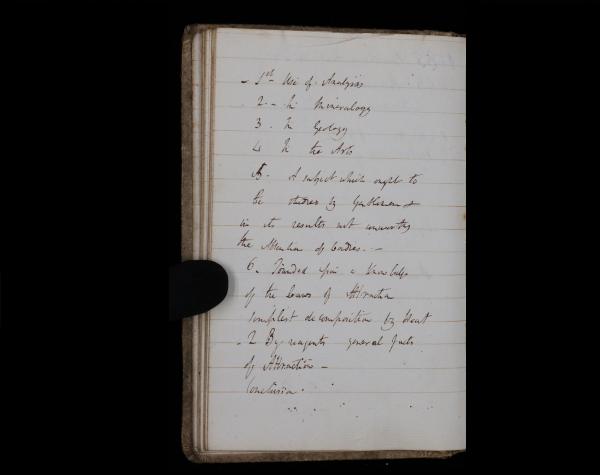 - 1st - Use of Analysis
2 - In Mineralogy
3 . In Geology
4 In the Arts
5 - A subject which ought to
be studied by Gentlemen &
in its results not unworthy
the Attention of Ladies. -
6. Founded upon a Knowledge
of the Laws of Attraction
Simplest decomposition by Heat
- 2 By reagents general facts
of Attraction -
Conclusion .